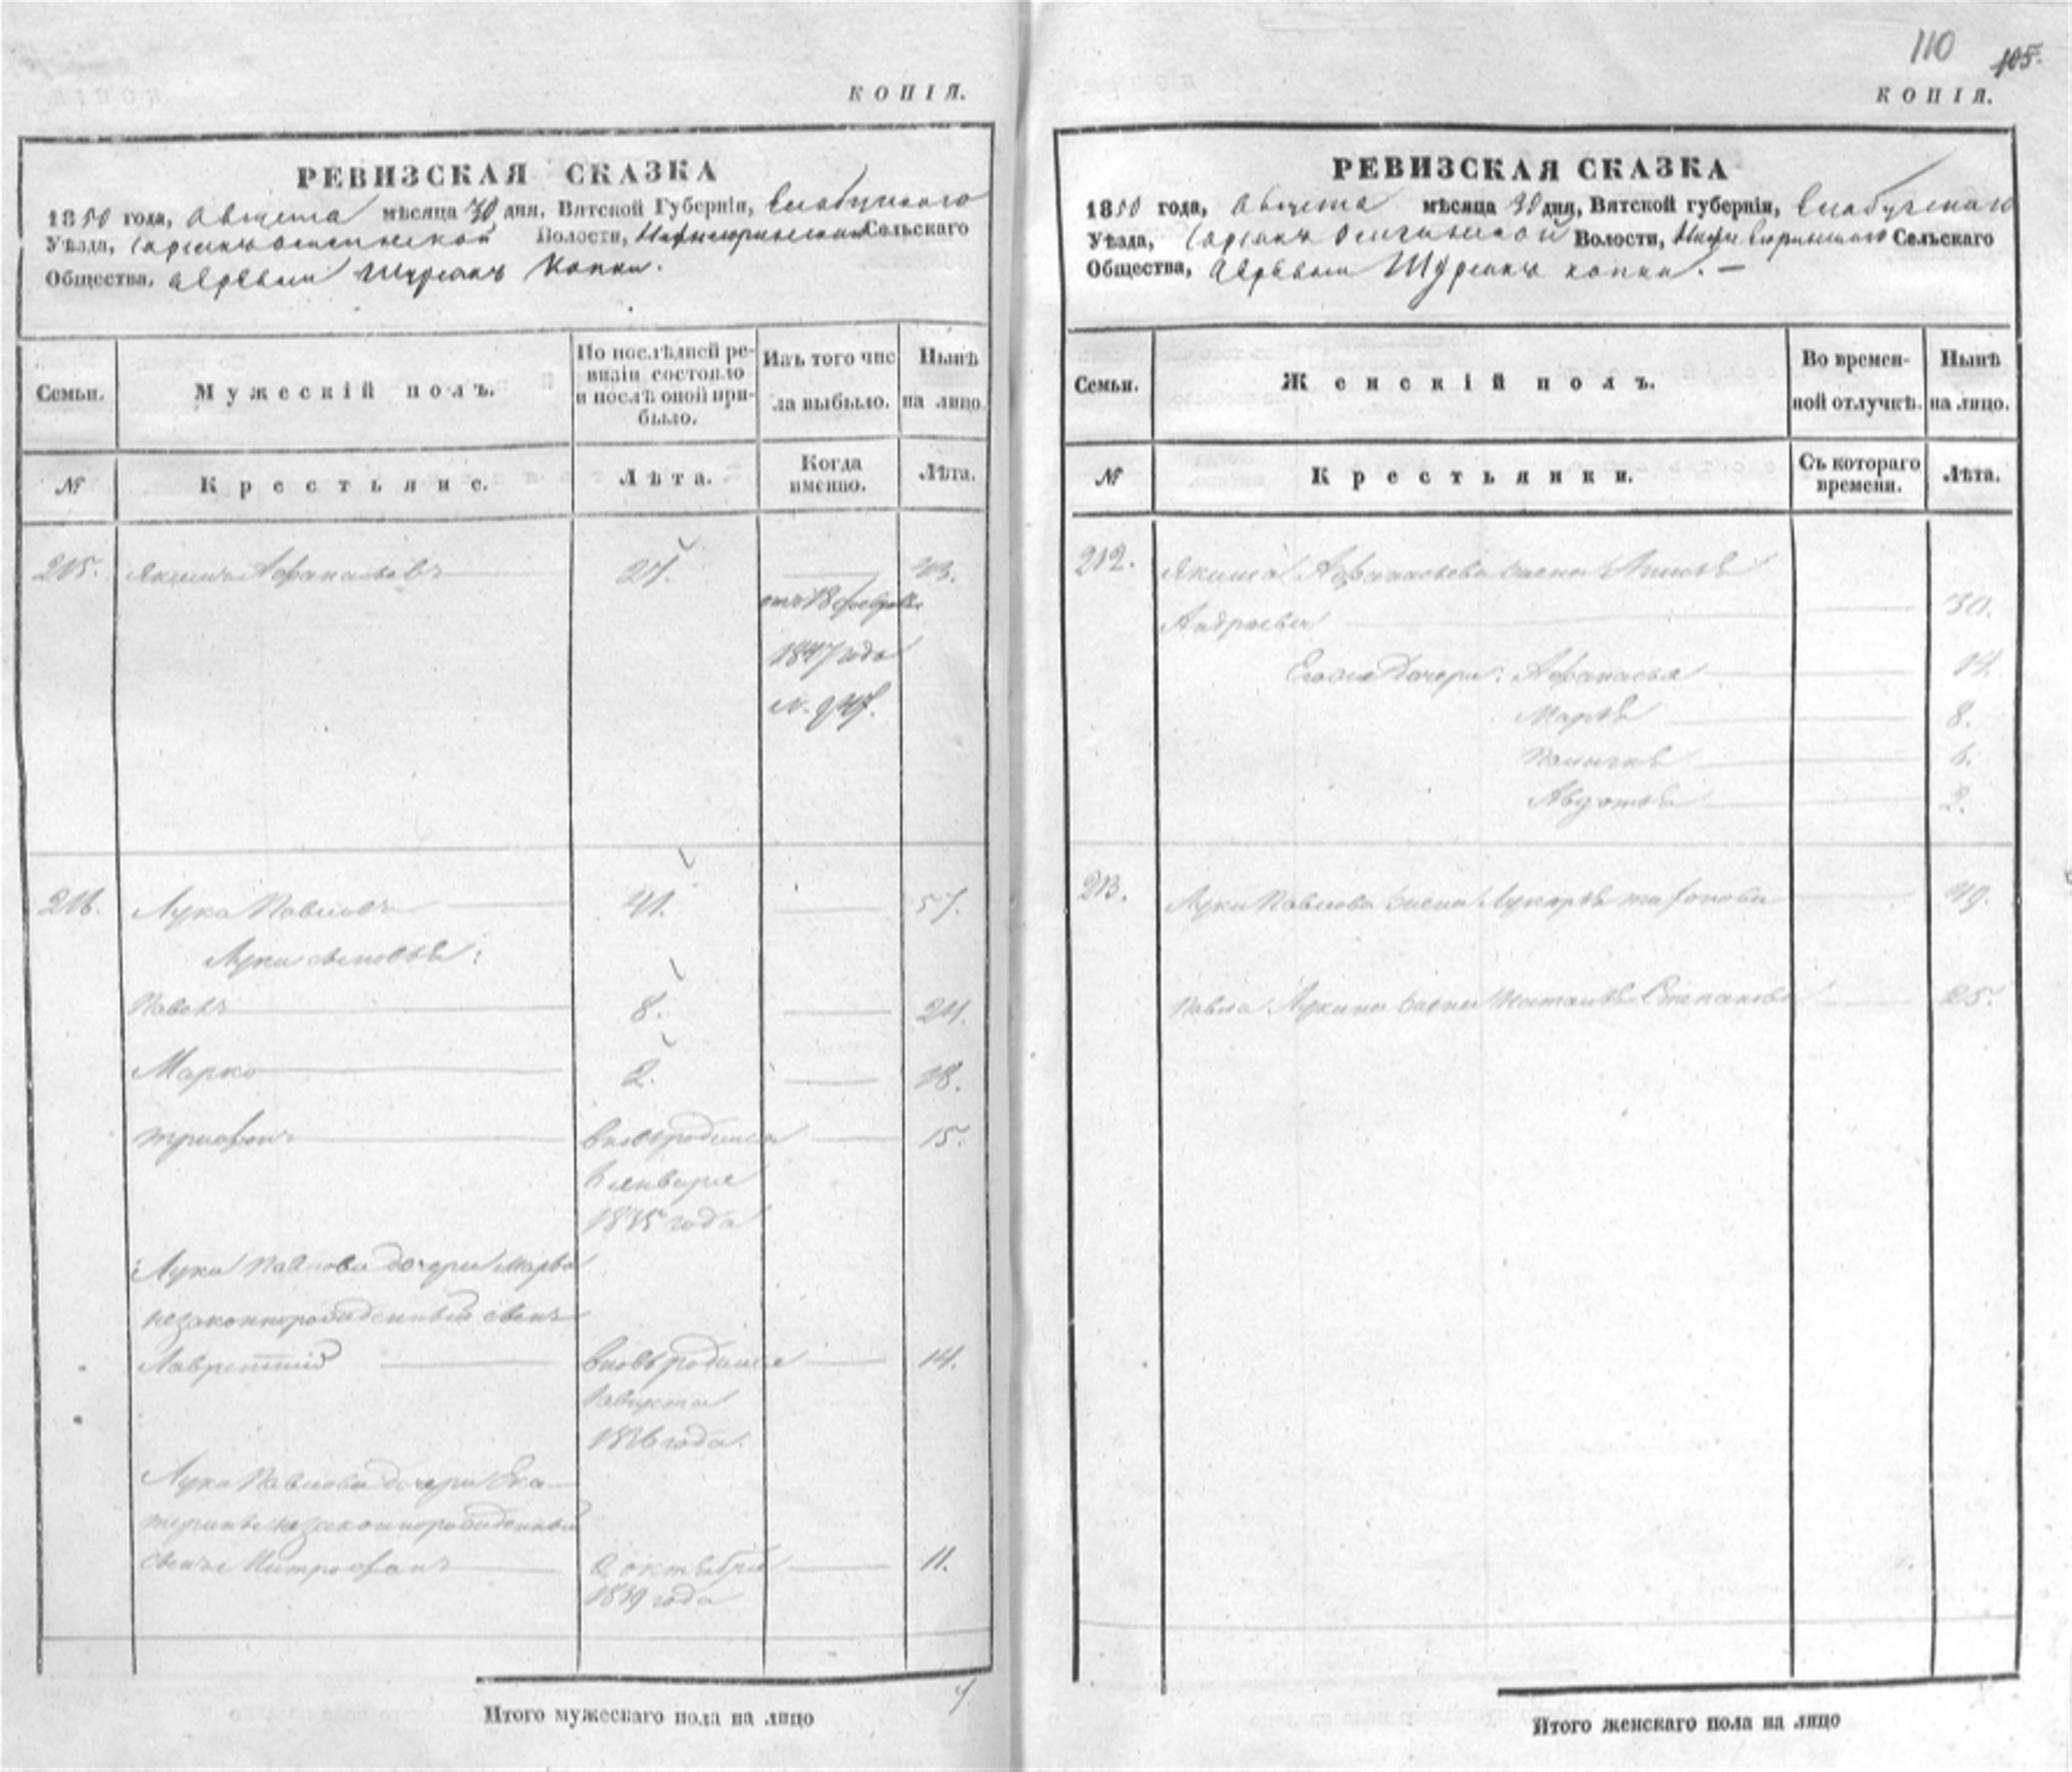 КОПІЯ.
РЕВИЗСКАЯ СКАЗКА
1850 года, Августа мѣсяца 30 дня, Вятской Губерніи, Елабужскаго
Уѣзда, Волости, Сельскаго
Общества, деревни Шурманъ Копки.
Семьи. Мужескій полъ. По послѣдней ревизіи состояло и послѣ оной прибыло. Изъ того числа выбыло. Нынѣ на лицо.
№ Крестьяне. Лѣта. Когда именно. Лѣта.
215. Якимъ Афанасьевъ 27. 43.
отъ 18 февраля
1847 года
№
216. Лука Павловъ 41. 57.
Луки сыновья:
Павелъ 8. 24.
Марко 2. 18.
Трифонъ вновьродился 15.
Въ январѣ
1835 года
Луки Павлова дочери Марфы
незаконнорожденный сынъ
Лаврентій вновьродился 14.
Августа
1836 года.
Луки Павлова дочери Ека-
терины незаконнорожденный
сынъ Митрофанъ октября 11.
1839 года
Итого мужескаго пола на лицо
110 105.
КОПІЯ.
РЕВИЗСКАЯ СКАЗКА
1850 года, Августа мѣсяца 30 дня, Вятской губерніи, Елабужскаго
Уѣзда, Волости, Сельскаго
Общества, деревни Шурманъ копки. —
Семьи. Женскій полъ. Во временной отлучкѣ. Нынѣ на лицо.
№ Крестьянки. Съ котораго времени. Лѣта.
212. Якима Афанасьева жена
Андреева 30.
Его же дочери: Афанасья
Марья 8.
6.
Авдотья 2.
213. Луки Павлова жена Лукерья 49.
Павла Лукина жена Наталья Степанова 25.
Итого женскаго пола на лицо